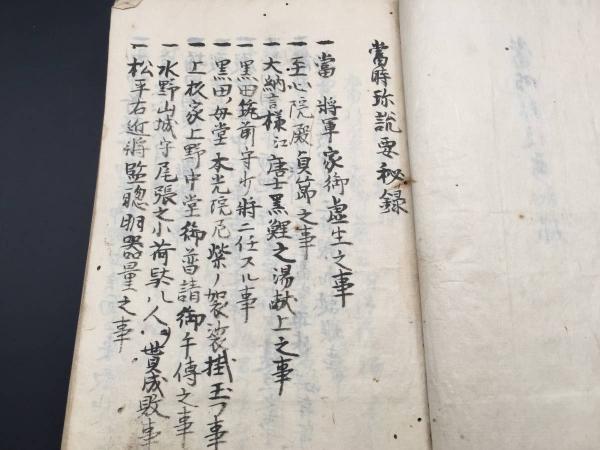 當時珎説要秘録
一當　将軍家御虚生之事
一至心院殿貞節之事
一大納言様江唐士黒鯉之湯献上之事
一黒田筑前守少将ニ任スル事
一黒田ノ母堂本光院尼紫ノ袈裟掛玉フ事
一上杦家上野中堂御普請御手傳之事
一水野山城守尾張之小荷駄八人ノ貫成敗事
一松平右近将監聰明器量之事